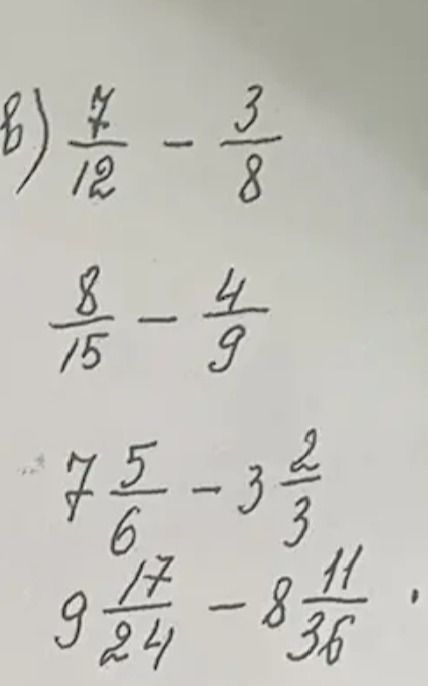 в) 7/12 - 3/8
8/15 - 4/9
7 5/6 - 3 2/3
9 17/24 - 8 11/36 .